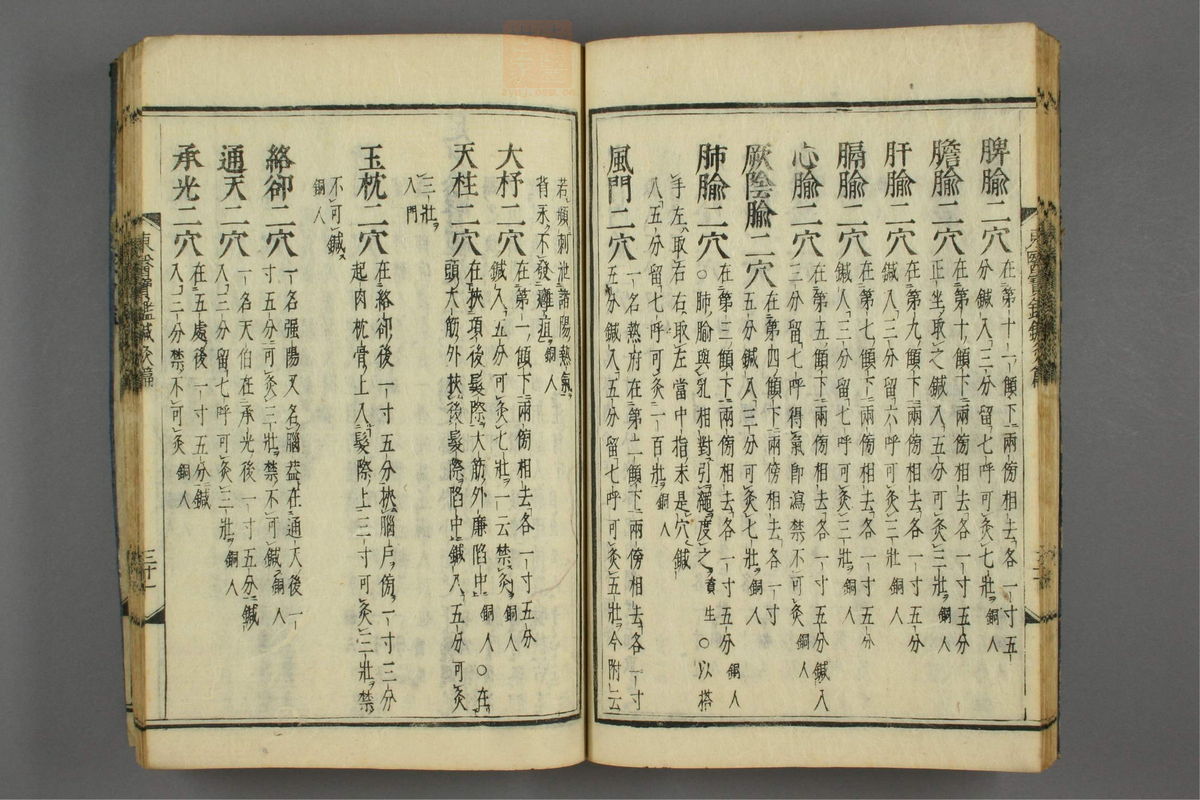 脾腧二穴在第十一顀下兩傍相去各一寸五
分鍼入三分留七呼可灸七壯銅人
膽腧二穴在第十顀下兩傍相去各一寸五分
正坐取之鍼入五分可灸三壯銅人
肝腧二穴在第九顀下兩傍相去各一寸五分
鍼入三分留六呼可灸三壯銅人
膈腧二穴在第七顀下兩傍相去各一寸五分
鍼入三分留七呼可灸三壯銅人
心腧二穴在第五顀下兩傍相去各一寸五分鍼入
三分留七呼得氣卽瀉禁不可灸銅人
厥陰腧二穴在第四顀下兩傍相去各一寸
五分鍼入三分可灸七壯銅人
肺腧二穴在第三顀下兩傍相去各一寸五分銅人
○肺腧與乳相對引繩度之資生○以搭
手左取右右取左當中指末是穴鍼
入五分留七呼可灸一百壯銅人
風門二穴一名熱府在第二顀下兩傍相去各一寸
五分鍼入五分留七呼可灸五壯今附云
若頻刺泄諸陽熱氣
背永不發癰疽銅人
大杼二穴在第一顀下兩傍相去各一寸五分
鍼入五分可灸七壯一云禁灸銅人
天柱二穴在挾項後髮際大筋外廉陷中銅人○在
頭大筋外挾後髮際陷中鍼入五分可灸
三壯
入門
玉枕二穴在絡却後一寸五分挾腦户傍一寸三分
起肉枕骨上入髮際上三寸可灸三壯禁
不可鍼
銅人
絡却二穴一名强陽又名腦盖在通天後一
寸五分可灸三壯禁不可鍼銅人
通天二穴一名天伯在承光後一寸五分鍼
入三分留七呼可灸三壯銅人
承光二穴在五處後一寸五分鍼
入三分禁不可灸銅人
東醫寶鑑鍼灸篇
三十一